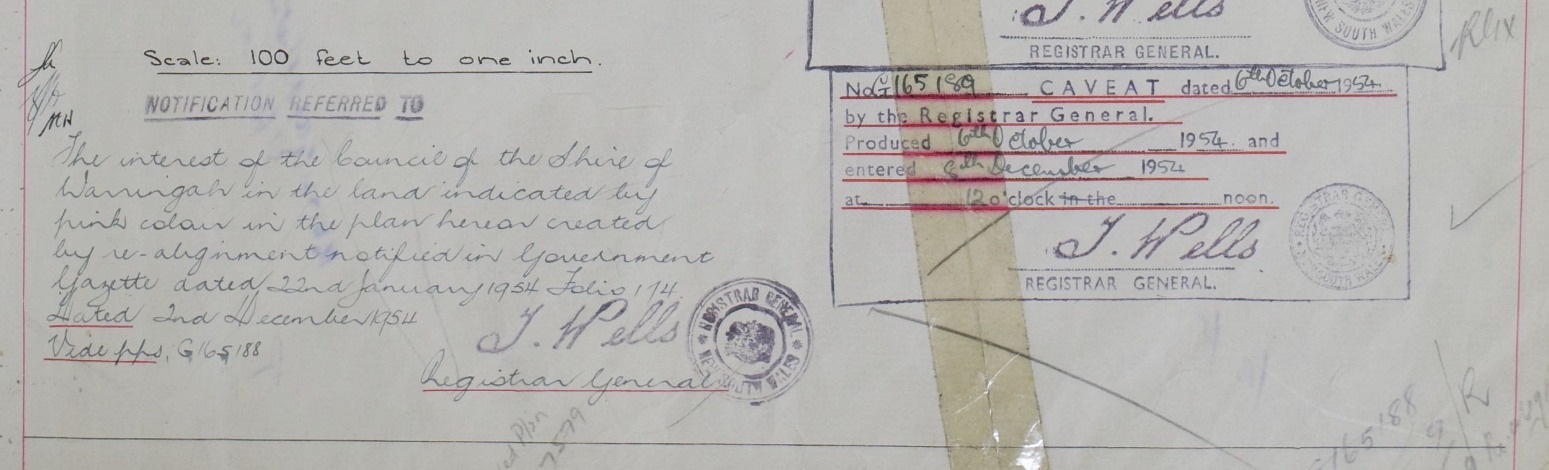 Scale: 100 feet to one inch.
NOTIFICATION REFERRED TO
The interest of the Council of the Shire of
Warringah in the land indicated by
pink colour in the plan hereon created
by re-alignment notified in Government
Gazette dated 22nd January 1954 Folio 174
Dated 2nd December 1954
Vide pps, G165188
J. Wells
Registrar General
REGISTRAR GENERAL
NEW SOUTH WALES
J. Wells
REGISTRAR GENERAL.
NEW SOUTH WALES
No. G165189 CAVEAT dated 6th October 1954
by the Registrar General.
Produced 6th October 1954 and
entered 8th December 1954
at 12 o'clock in the noon.
J. Wells
REGISTRAR GENERAL.
REGISTRAR GENERAL
NEW SOUTH WALES
Plan
7579
G165188
9
R